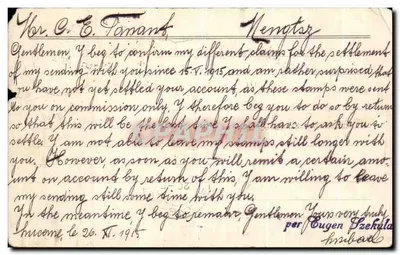 Mr. C. E. Tanant Mengtsz
Gentlemen, I beg to confirm my different claims for the settlement
of my sending with you since 15.V.1915 and am rather surprised that
you have not yet settled your account, as these stamps were sent
to you on commission only. I therefore beg you to do so by return
so that this will be the last time I shall have to ask you to
settle. I am not able to leave my stamps still longer with
you. However, as soon, as you will remit a certain amo-
unt on account by return of this, I am willing to leave
my sending still some time with you.
In the meantime, I beg to remain, Gentlemen Yours very truly
Lucerne, le 26. XI. 1915 per Eugen Szekula